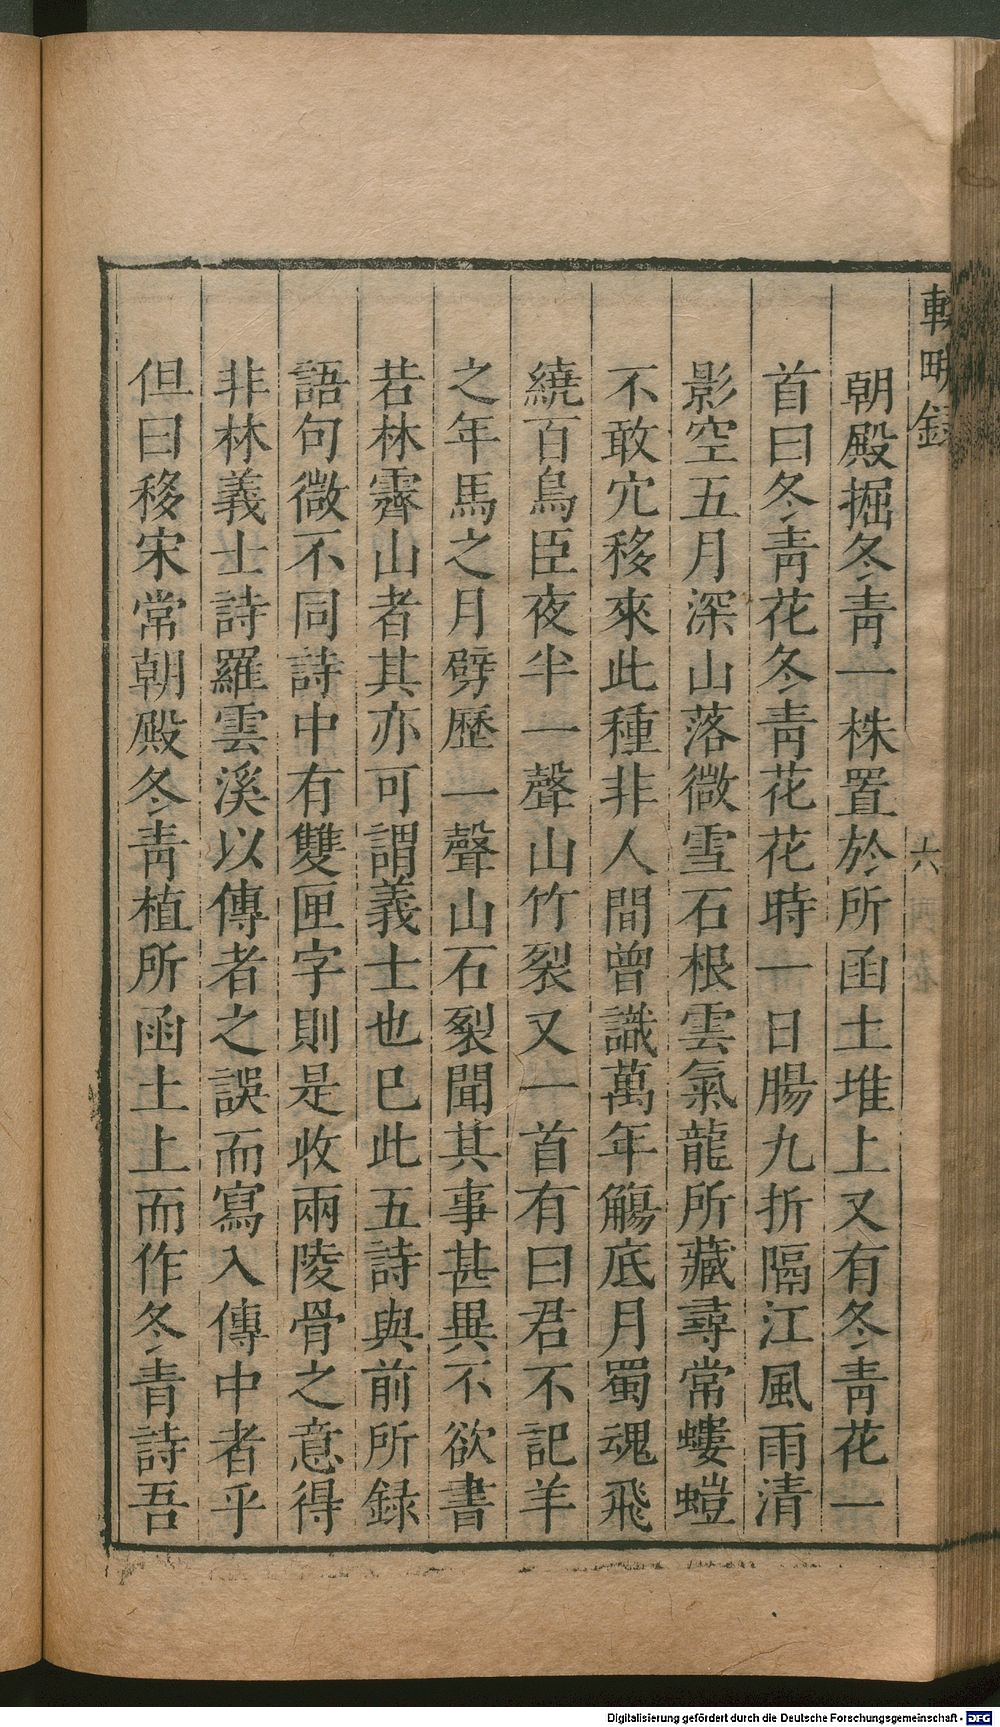 輟畊錄
六
朝殿掘冬青一株置於所函土堆上又有冬青花一
首曰冬青花冬青花花時一日腸九折隔江風雨清
影空五月深山落微雪石根雲氣龍所藏尋常螻螘
不敢穴移來此種非人間曾識萬年觴底月蜀魂飛
繞百鳥臣夜半一聲山竹裂又一首有曰君不記羊
之年馬之月劈歷一聲山石裂聞其事甚異不欲書
若林霽山者其亦可謂義士也巳此五詩與前所録
語句微不同詩中有雙匣字則是收兩陵骨之意得
非林義士詩羅雲溪以傳者之誤而寫入傳中者乎
但曰移宋常朝殿冬青植所函土上而作冬青詩吾
Digitalisierung gefördert durch die Deutsche Forschungsgemeinschaft - DFG